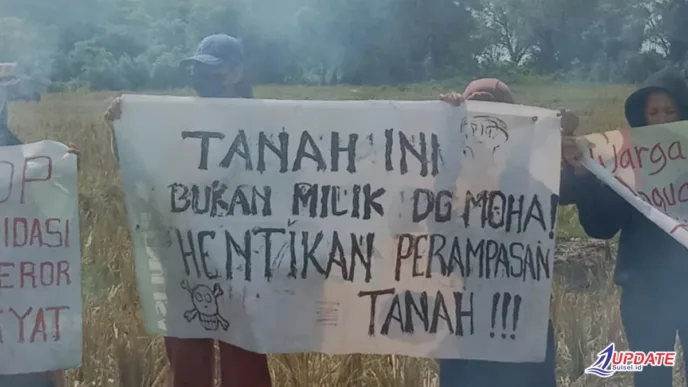 TANAH INI
BUKAN MILIK DG MOHA!
HENTIKAN PERAMPASAN
TANAH !!!
OP
IDASI
EROR
YAT
Warga
1UPDATE
Sulsel.id